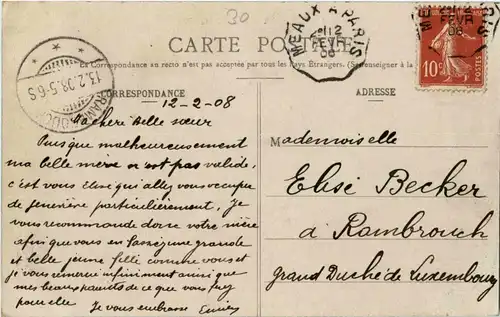 30
CARTE POSTALE
La Correspondance au recto n'est pas acceptée par tous les Pays Étrangers. (Se renseigner à la
CORRESPONDANCE
ADRESSE
MEAUX A PARIS
12
08
FEVR
08
10c
POSTES
13.2.08.5-6S
12-2-08
Ma chère belle sœur
Puisque malheureusement
ma belle mère n'est pas valide,
c'est vous Elise qui allez vous occupe
de particulièrement, je
vous recommande donc votre nièce
afin que vous en fassiez une grande
et belle jeune fille comme vous et
je vous remercie infiniment ainsi que
mes beaux parents de ce que vous
pour elle Je vous embrasse
Mademoiselle
Elise Becker
à Rambrouch
grand Duché de Luxembourg